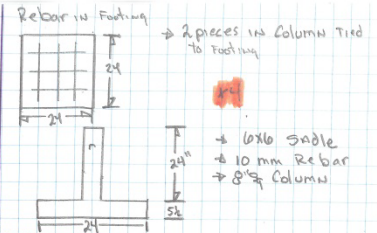 Rebar in Footing
→ 2 pieces in Column Tied
to Footing
24
24
x4
24"
5½
24
→ 6x6 Sadle
→ 10 mm Rebar
→ 8"φ Column